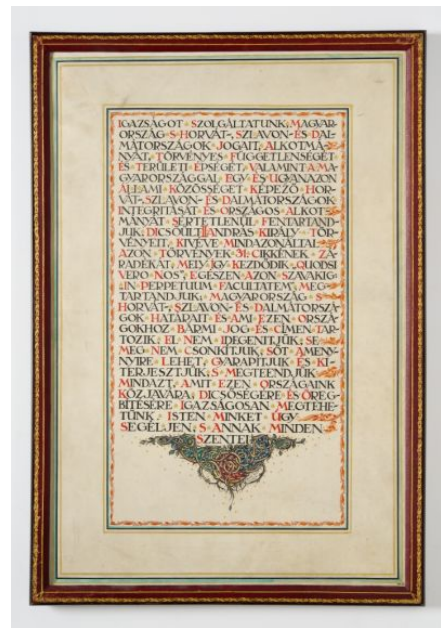 IGAZSÁGOT SZOLGÁLTATUNK; MAGYAR-
ORSZÁG S HORVÁT-, SZLAVON- ÉS DAL-
MÁTORSZÁGOK JOGAIT, ALKOTMÁ-
NYÁT, TÖRVÉNYES FÜGGETLENSÉGÉT
ÉS TERÜLETI ÉPSÉGÉT, VALAMINT A MA-
GYARORSZÁGGAL EGY ÉS UGYANAZON
ÁLLAMI KÖZÖSSÉGET KÉPEZŐ HOR-
VÁT-SZLAVON- ÉS DALMÁTORSZÁGOK
INTEGRITÁSÁT ÉS ORSZÁGOS ALKOT-
MÁNYÁT SÉRTETLENÜL FENTARTAND-
JUK; DICSŐÜLT II ANDRÁS KIRÁLY TÖR-
VÉNYEIT, KIVÉVE MINDAZONÁLTAL
AZON TÖRVÉNYEK 31. CIKKÉNEK ZÁ-
RADÉKÁT, MELY ÍGY KEZDŐDIK „QUODSI
VERO NOS", EGÉSZEN AZON SZAVAKIG
„IN PERPETUUM FACULTATEM", MEG-
TARTANDJUK; MAGYARORSZÁG S
HORVÁT-, SZLAVON- ÉS DALMÁTORSZÁ-
GOK HATÁRAIT ÉS AMI EZEN ORSZÁ-
GOKHOZ BÁRMI JOG ÉS CÍMEN TAR-
TOZIK, EL NEM IDEGENÍTJÜK, SE
MEG NEM CSONKÍTJUK, SŐT AMENY-
NYIRE LEHET, GYARAPÍTJUK ÉS KI-
TERJESZTJÜK; S MEGTEENDJÜK
MINDAZT, AMIT EZEN ORSZÁGAINK
KÖZJAVÁRA, DICSŐSÉGÉRE ÉS ÖREG-
BÍTÉSÉRE IGAZSÁGOSAN MEGTEHE-
TÜNK. ISTEN MINKET ÚGY
SEGÉLJEN, S ANNAK MINDEN
SZENTEI